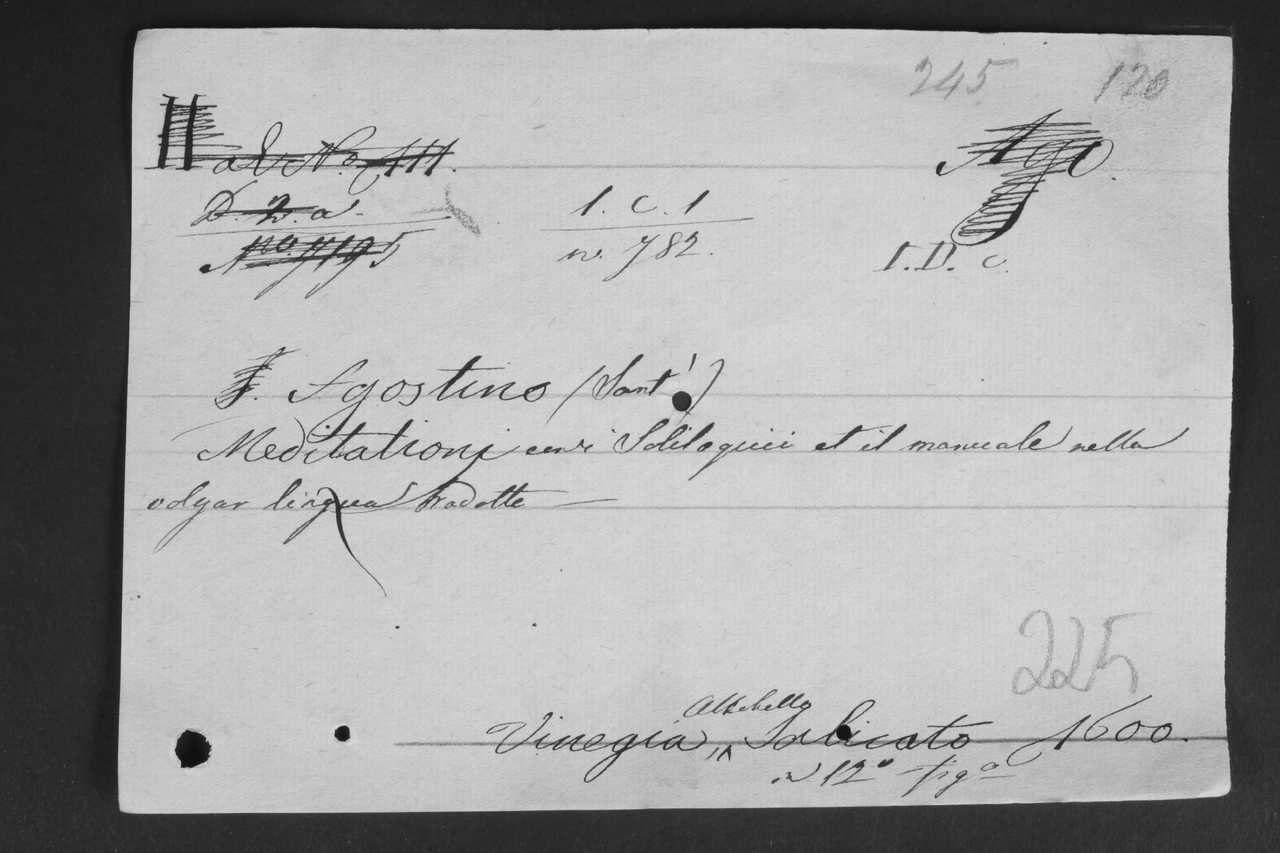 245 120
Ago.
D. 2. a.
No. 7195
1. C. 1
n. 782.
I. D. c.
Agostino (Sant')
Meditationi con i Soliloquii et il manuale nella
volgar lingua tradotte
225
Vinegia, Altobello Salicato 1600.
in 12° figª